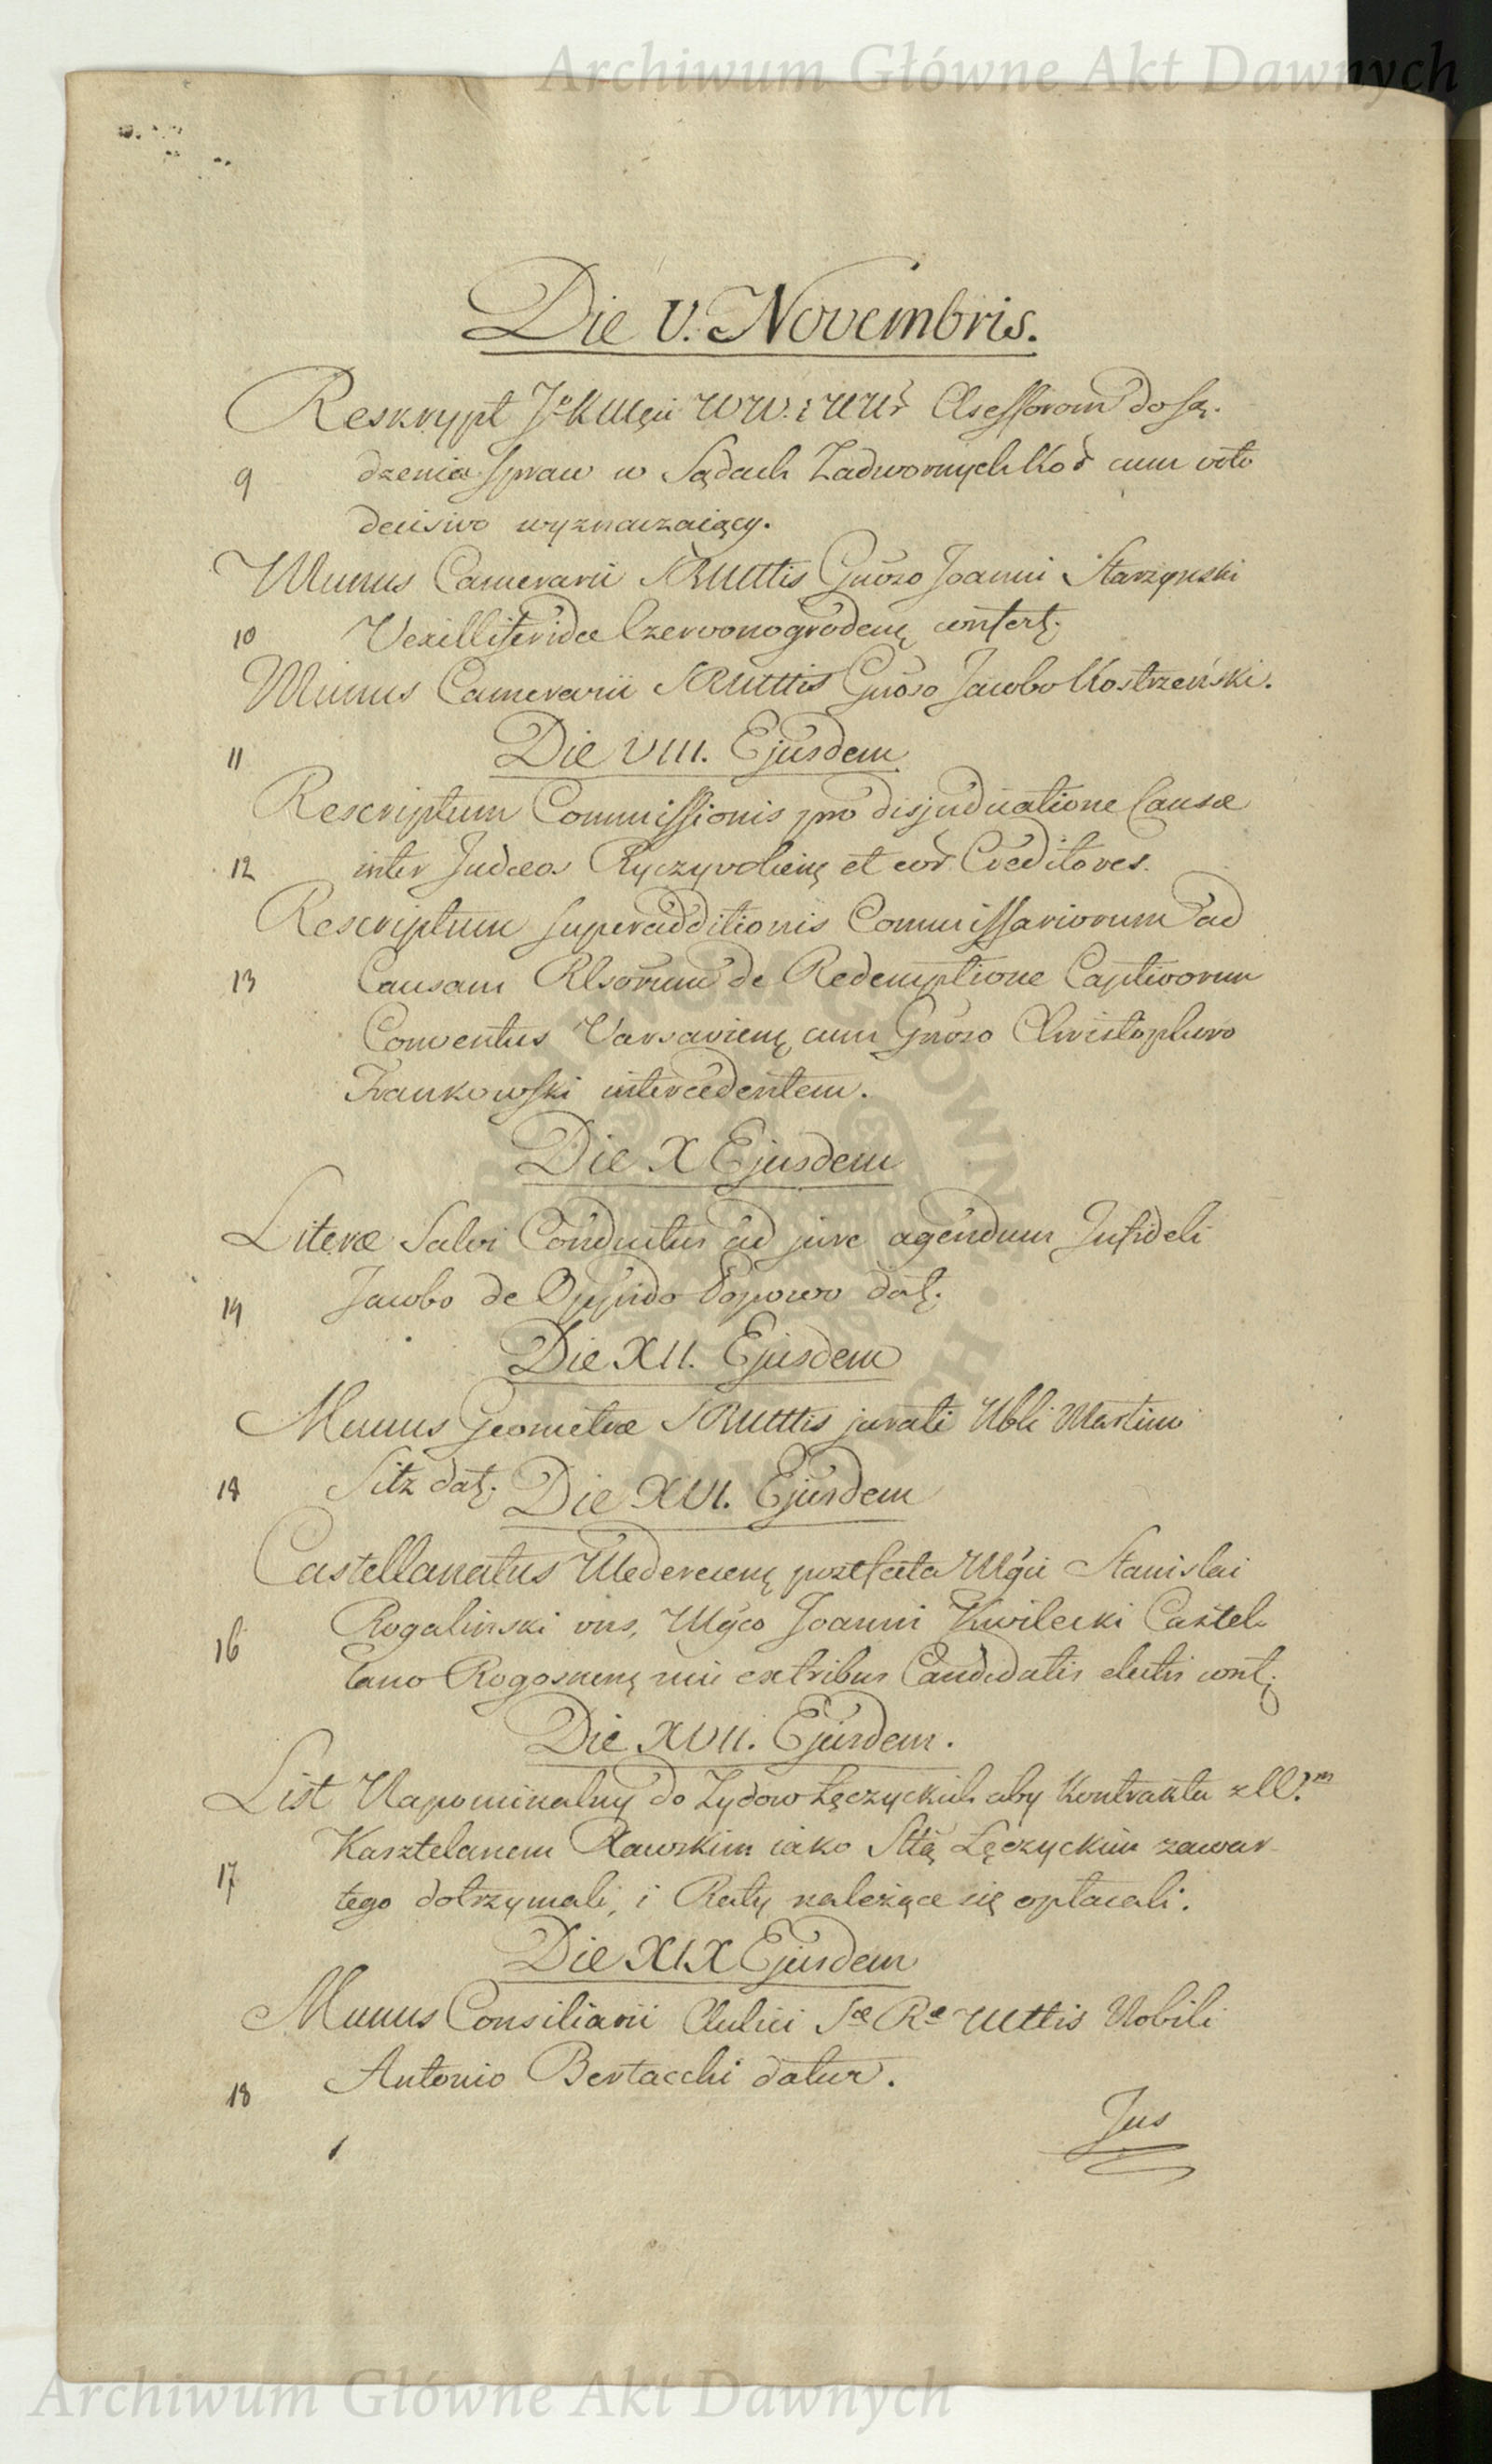 Archiwum Główne Akt Dawnych
Die V. Novembris.
Reskrypt Jo K Mci WW. i UUr Assessorom do są-
9 dzenia spraw w Sądach Zadwornych Kor cum voto
decisivo wyznaczaiący.
Munus Camerarii SRMttis Gnoso Joanni Starzynski
10 Vexilliferidae Czerwonogroden. confert.
Munus Camerarii SRMttis Gnoso Jacobo Kostrzeński.
11 Die VIII. Ejusdem
Rescriptum Commissionis pro disjudicatione Causae
12 inter Judaeos Ryczyvolien. et eor. Creditores.
Rescriptum superadditionis Commissariorum ad
13 Causam Rlsorum de Redemptione Captivorum
Conventus Varsavien. cum Gnoso Christophoro
Frankowski intercedentem.
Die X Ejusdem
Literae Salvi Conductus ad jure agendum Infideli
14 Jacobo de Oppido Popowo dat.
Die XII. Ejusdem
Munus Geometrae SRMttis jurati Nbli Martino
15 Sitz dat. Die XVI. Ejusdem
Castellanatus Mederecen. post fata Mgci Stanislai
16 Rogalinski vus, Mgco Joanni Kwilecki Castel-
lano Rogosnen. uni ex tribus Candidatis electis conf.
Die XVII. Ejusdem.
List Napominalny do Zydow Łęczyckich aby Kontraktu z U.m
17 Kasztelanem Rawskim iako Sttą Łęczyckim zawar-
tego dotrzymali, i Raty należące się opłacali.
Die XIX Ejusdem
Munus Consiliarii Aulici Sae Rae Mttis Nobili
18 Antonio Bertacchi datur.
Jus
Archiwum Główne Akt Dawnych